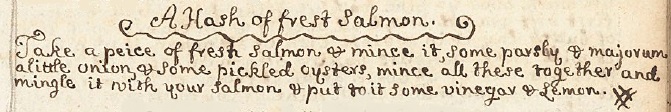 A Hash of fresh Salmon.
Take a peice of fresh Salmon & mince it, some parsly & majorum
a little onion, & some pickled oysters, mince all these together and
mingle it with your Salmon & put to it some vinegar & Lemon.